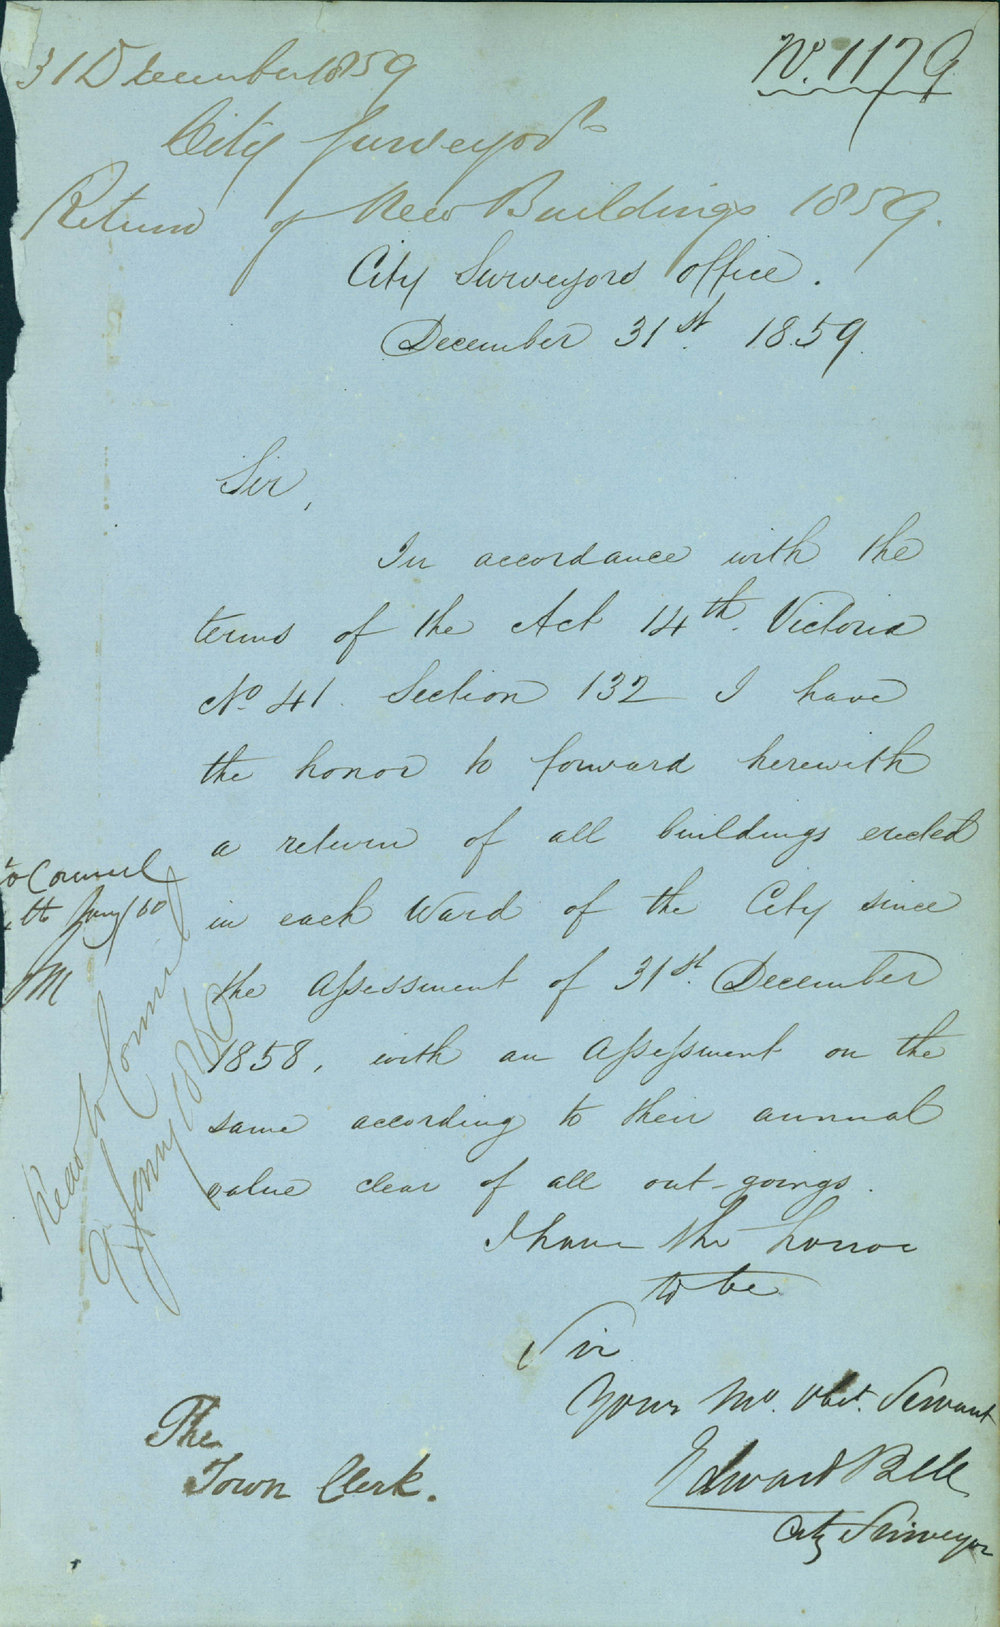 31 December 1859
No. 1179
City Surveyors
Return of New Buildings 1859.
City Surveyors Office.
December 31st 1859.
Sir,
In accordance with the
terms of the Act 14th Victoria
No 41. Section 132 I have
the honor to forward herewith
a return of all buildings erected
in each Ward of the City since
the Assessment of 31st December
1858, with an Assessment on the
same according to their annual
value clear of all out-goings.
I have the honor
to be
Sir
Your Mo. Obet. Servant
Edward Bell
City Surveyor
The
Town Clerk.
to Council
th Jany/60
JM
Read to Council
9 Jany 1860